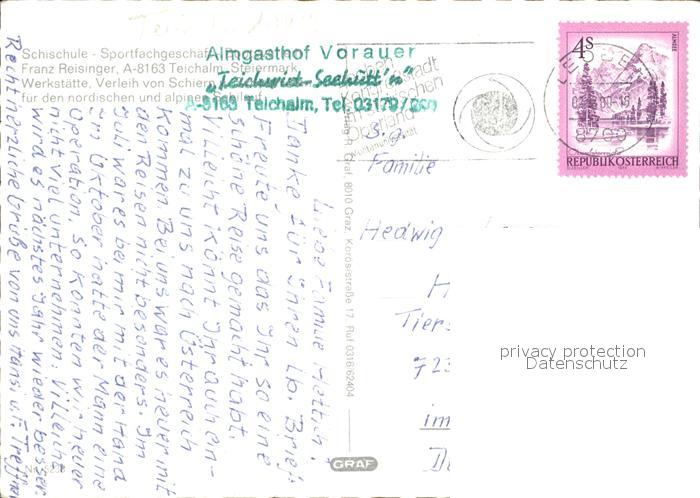 Schischule - Sportfachgeschäft
Franz Reisinger, A-8163 Teichalm, Steiermark
Werkstätte, Verleih von
für den nordischen und alpinen
Almgasthof Vorauer
„Teichwirt-Seehütt'n“
A-8163 Teichalm, Tel. 03179/
Liebe Familie
Danke für Euren lb. Brief
Freute uns das Ihr so eine
schöne Reise gemacht habt.
Vielleicht könnt Ihr auch ein-
mal zu uns nach Österreich
kommen Bei uns war es heuer mit
den Reisen nicht besonders. Im
Juli war es bei mir mit der Hand
im Oktober hatte der Mann eine
Operation, so konnten wir heuer
nicht viel unternehmen. Villeicht
wird es nächstes Jahr wieder besser
Recht herzliche Grüße von uns
8010 Graz, Körösistraße 17, Ruf 0316/62464
GRAF
4s
ALMSEE
REPUBLIK ÖSTERREICH
LEOBEN
8700
Familie
Hedwig
H
Tiers
72
im
D
privacy protection
Datenschutz